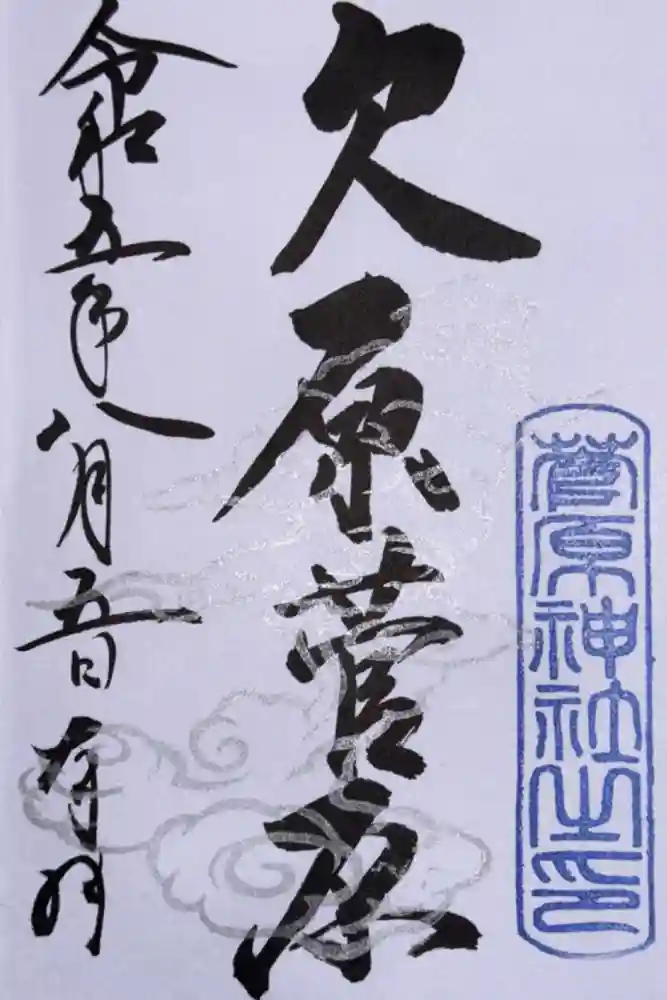 菅原神社之印
久原菅原
令和五年八月五日 奉拝